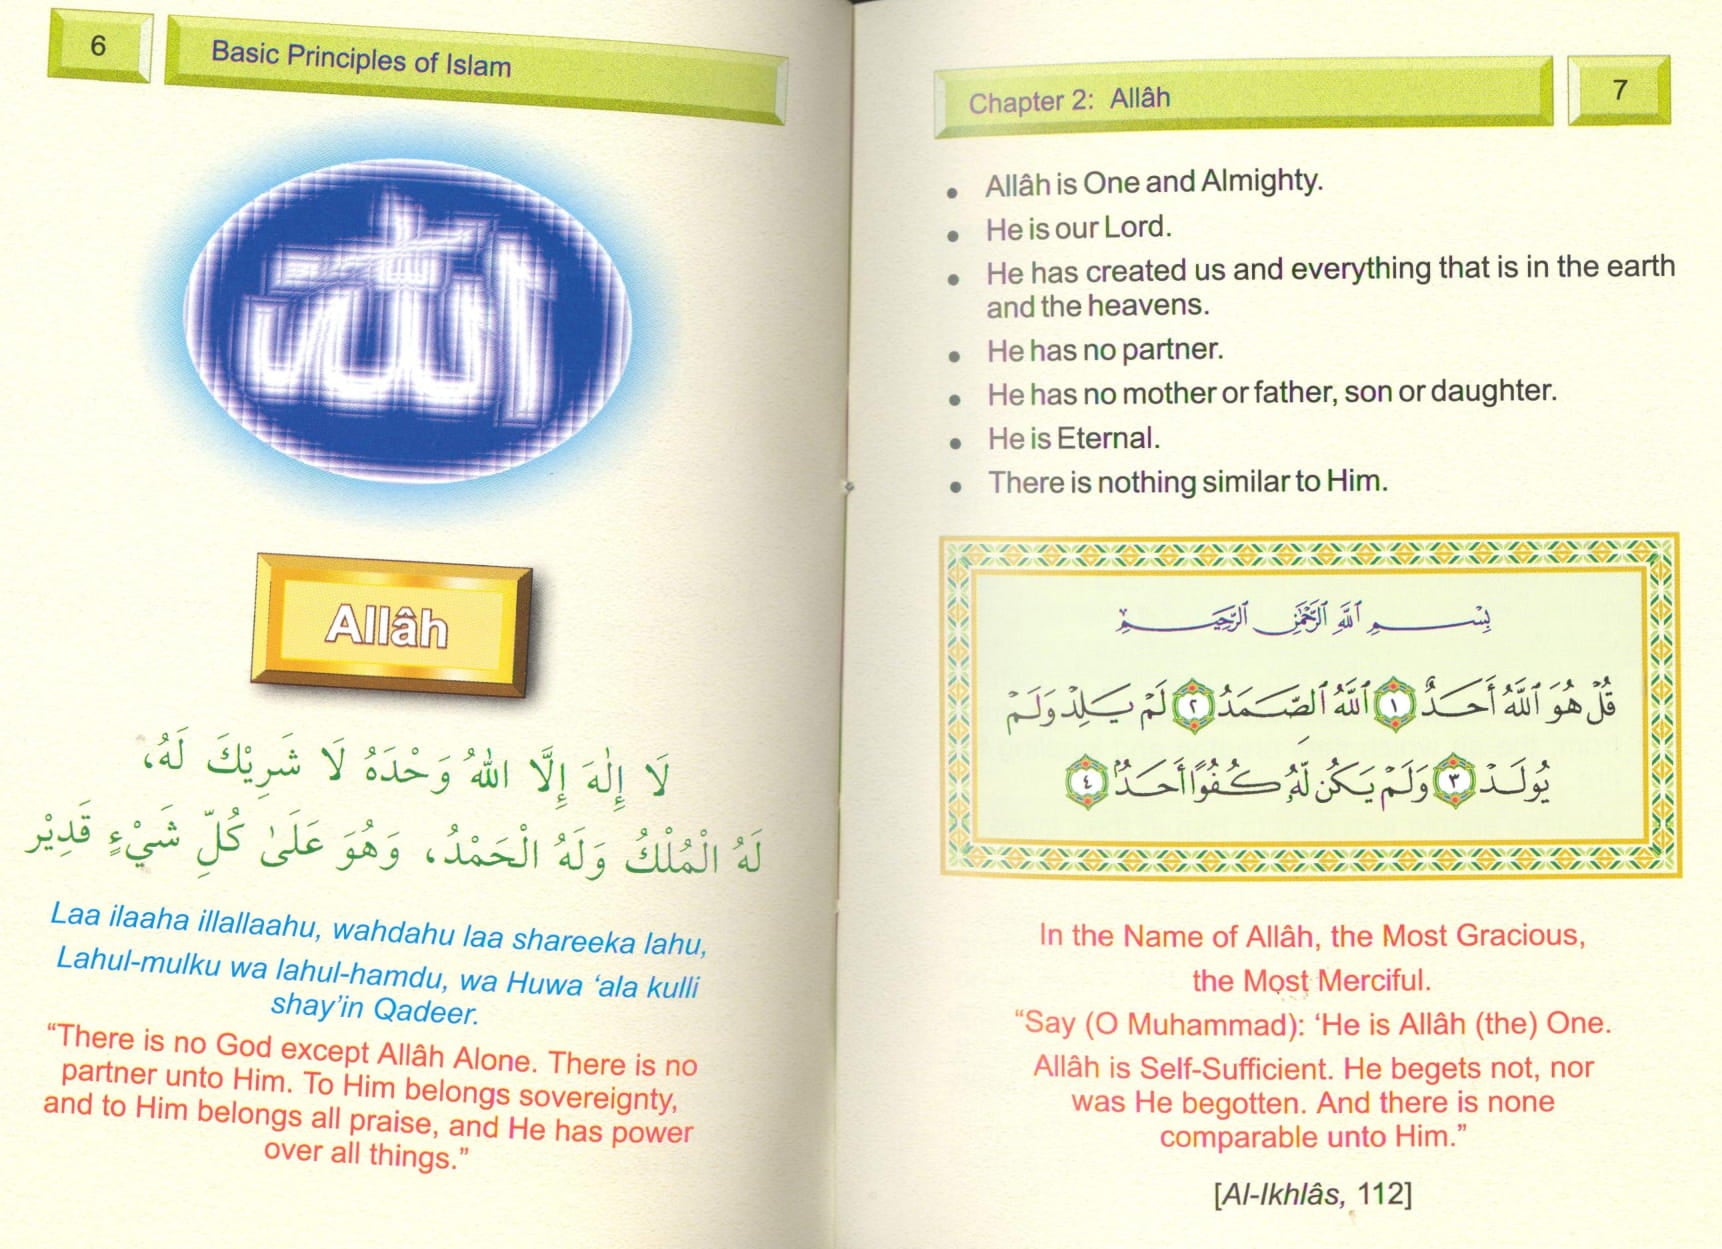 6
Basic Principles of Islam
الله
Allâh
لَا إِلٰهَ إِلَّا اللهُ وَحْدَهُ لَا شَرِيْكَ لَهُ،
لَهُ الْمُلْكُ وَلَهُ الْحَمْدُ، وَهُوَ عَلَىٰ كُلِّ شَيْءٍ قَدِيْر
Laa ilaaha illallaahu, wahdahu laa shareeka lahu,
Lahul-mulku wa lahul-hamdu, wa Huwa ‘ala kulli
shay’in Qadeer.
“There is no God except Allâh Alone. There is no
partner unto Him. To Him belongs sovereignty,
and to Him belongs all praise, and He has power
over all things.”
Chapter 2: Allâh
7
• Allâh is One and Almighty.
• He is our Lord.
• He has created us and everything that is in the earth
and the heavens.
• He has no partner.
• He has no mother or father, son or daughter.
• He is Eternal.
• There is nothing similar to Him.
بِسْمِ ٱللَّهِ ٱلرَّحْمَٰنِ ٱلرَّحِيمِ
قُلْ هُوَ ٱللَّهُ أَحَدٌ ١ ٱللَّهُ ٱلصَّمَدُ ٢ لَمْ يَلِدْ وَلَمْ
يُولَدْ ٣ وَلَمْ يَكُن لَّهُۥ كُفُوًا أَحَدٌۢ ٤
In the Name of Allâh, the Most Gracious,
the Most Merciful.
“Say (O Muhammad): ‘He is Allâh (the) One.
Allâh is Self-Sufficient. He begets not, nor
was He begotten. And there is none
comparable unto Him.”
[Al-Ikhlâs, 112]